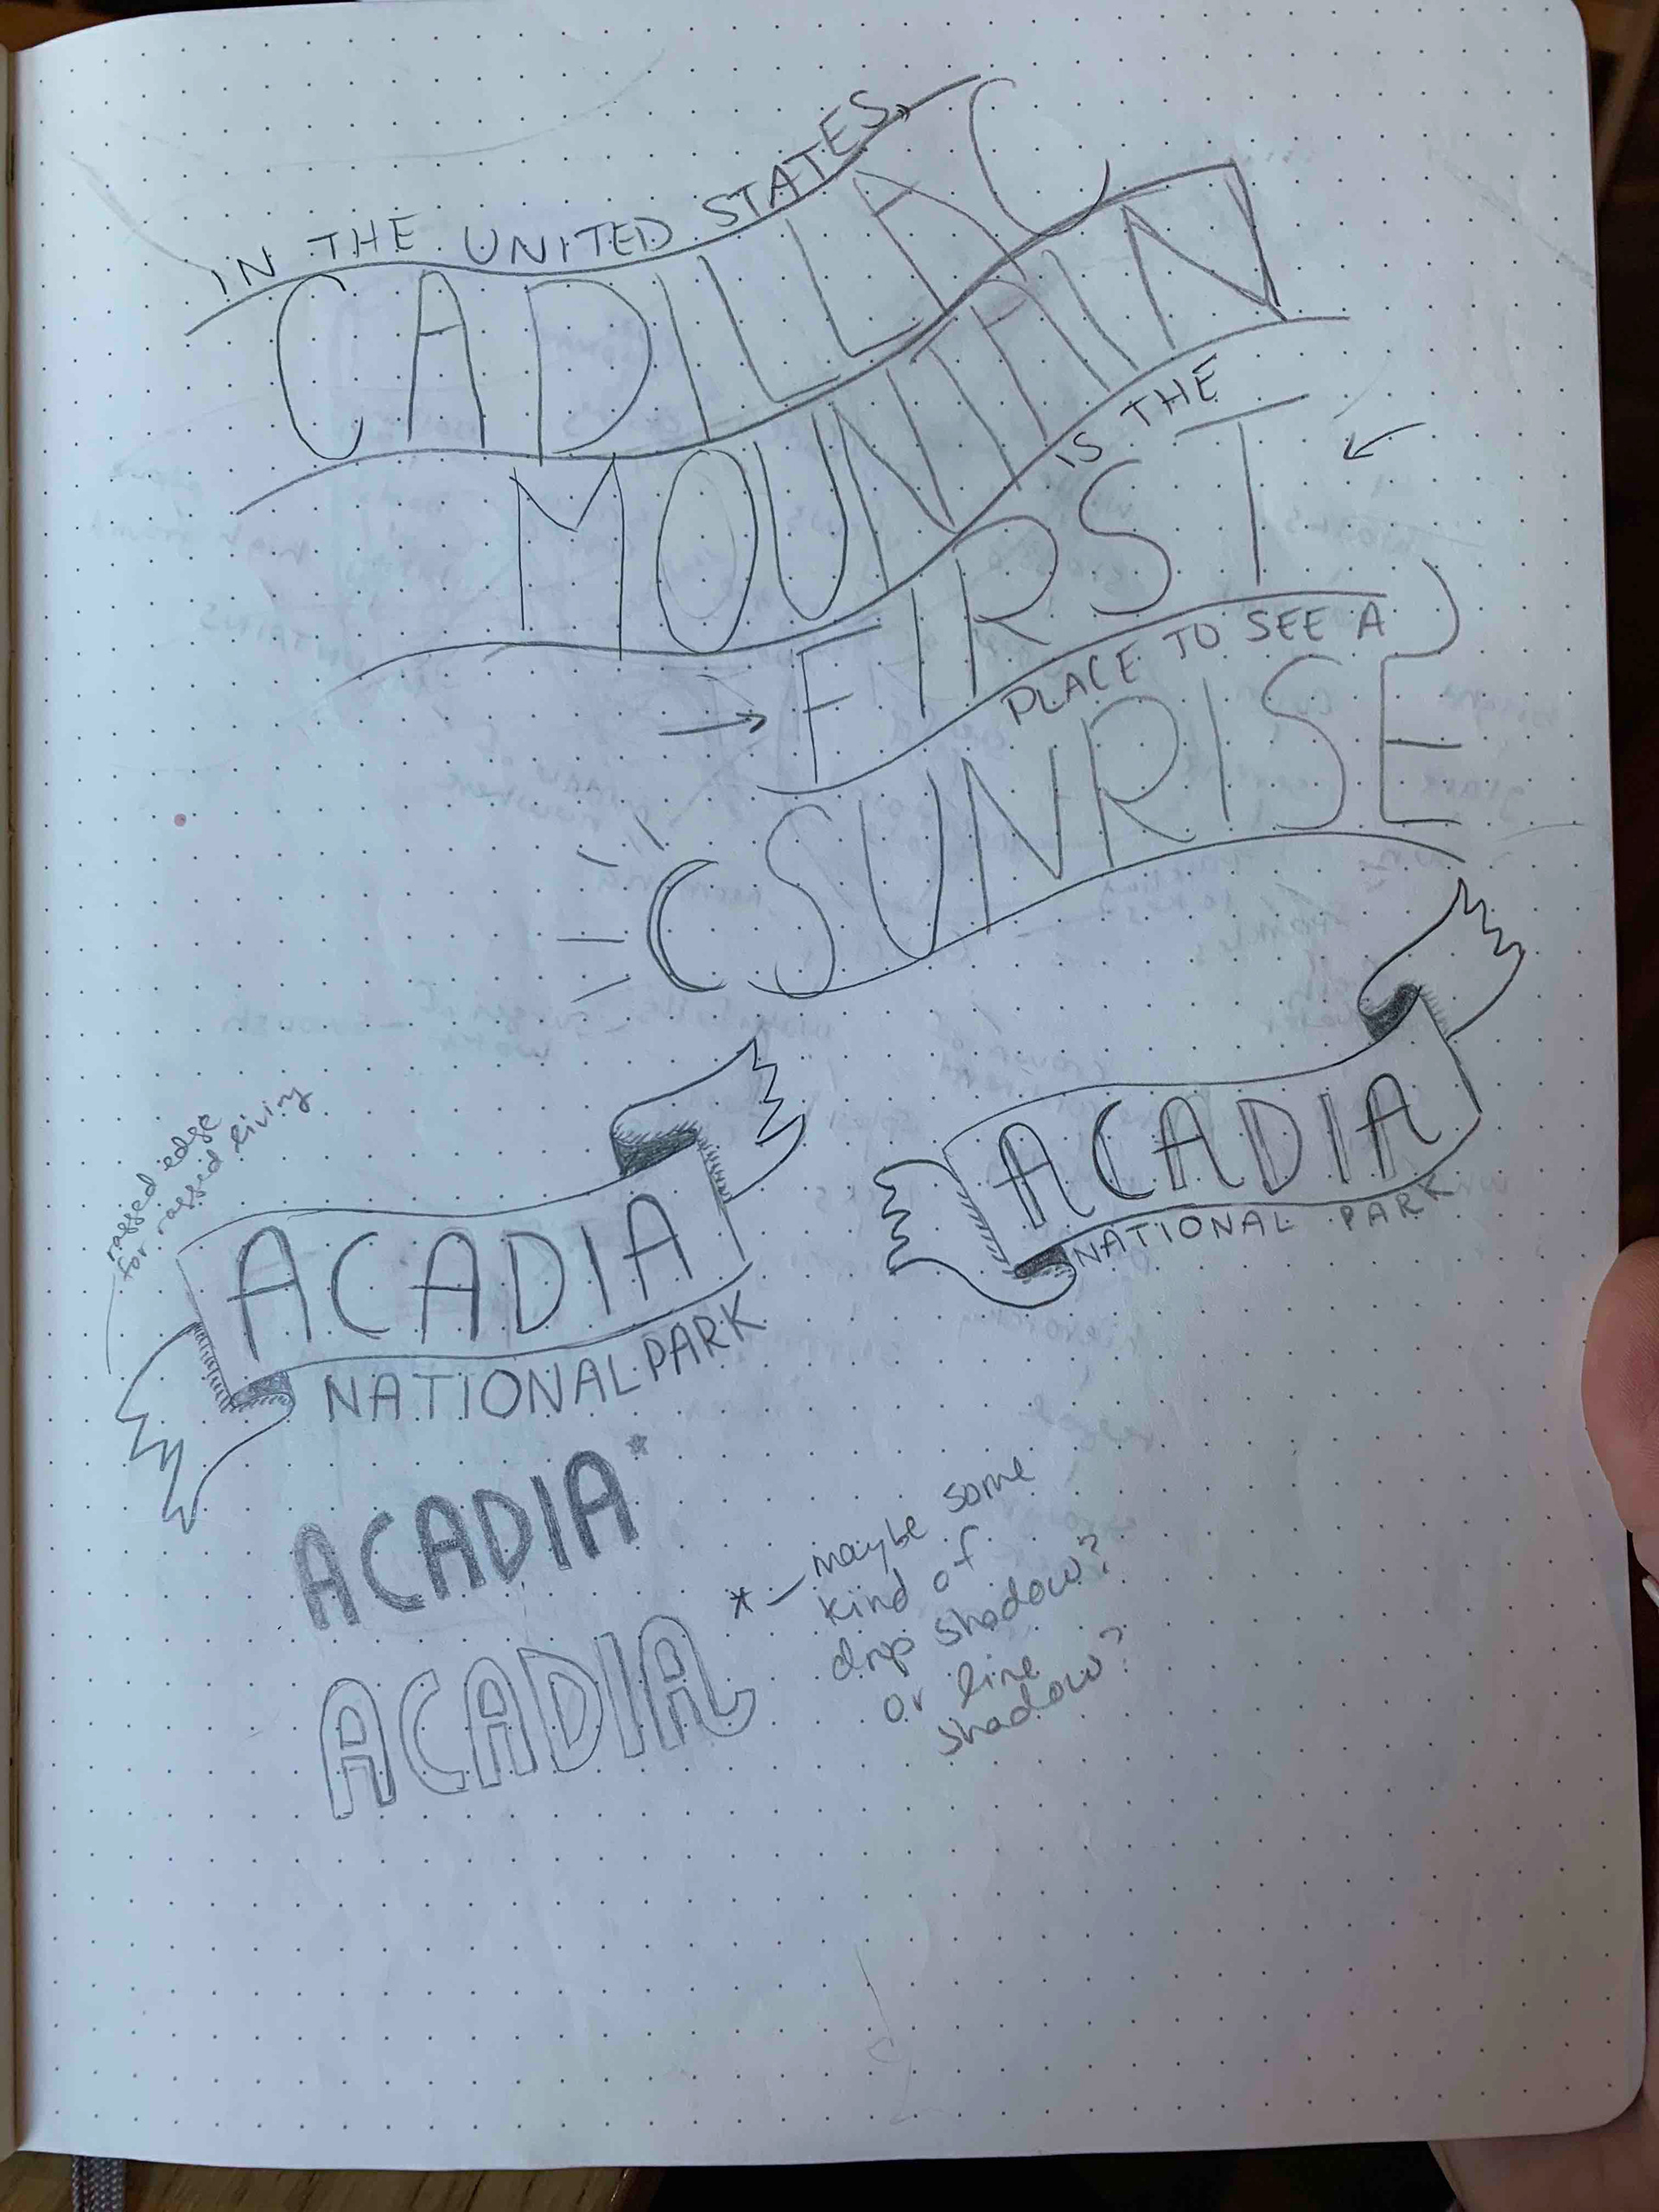 IN THE UNITED STATES
CADILLAC
MOUNTAIN
IS THE
FIRST
PLACE TO SEE A
SUNRISE
ragged edge
for ragged living
ACADIA
NATIONAL PARK
ACADIA
NATIONAL PARK
ACADIA*
ACADIA
* – maybe some
kind of
drop shadow?
or line
shadow?